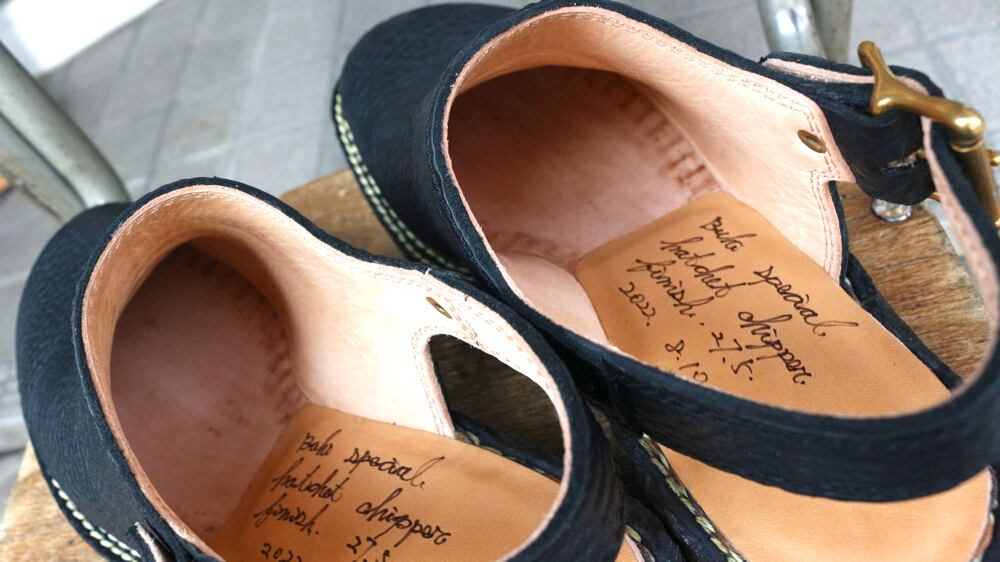 special.
hatchet chipper.
finish. 27.5.
2022. 8.10
special.
hatchet chipper
finish. 27.5
2022